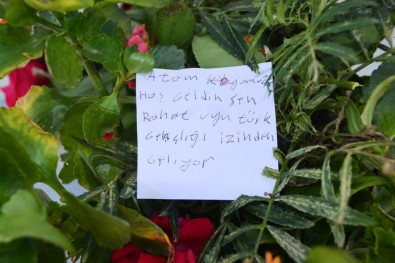 Atam
Hoş Geldin Sen
Rahat uyu türk
Gençliği izinden
Geliyor